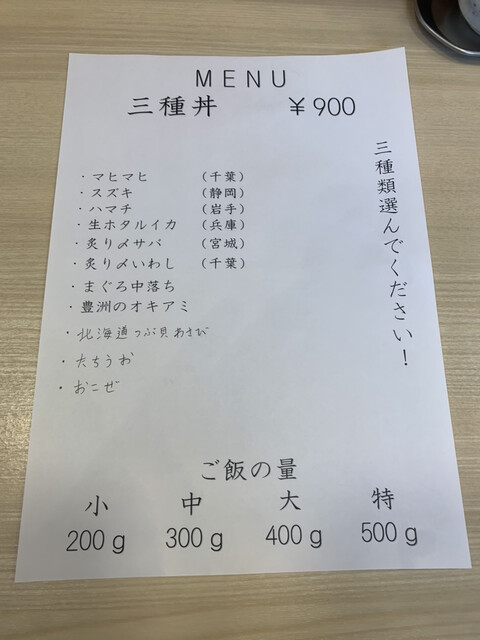 MENU
三種丼 ￥900
三種類選んでください！
・マヒマヒ （千葉）
・スズキ （静岡）
・ハマチ （岩手）
・生ホタルイカ （兵庫）
・炙り〆サバ （宮城）
・炙り〆いわし （千葉）
・まぐろ中落ち
・豊洲のオキアミ
・北海道つぶ貝わさび
・たちうお
・おこぜ
ご飯の量
小 中 大 特
200g 300g 400g 500g